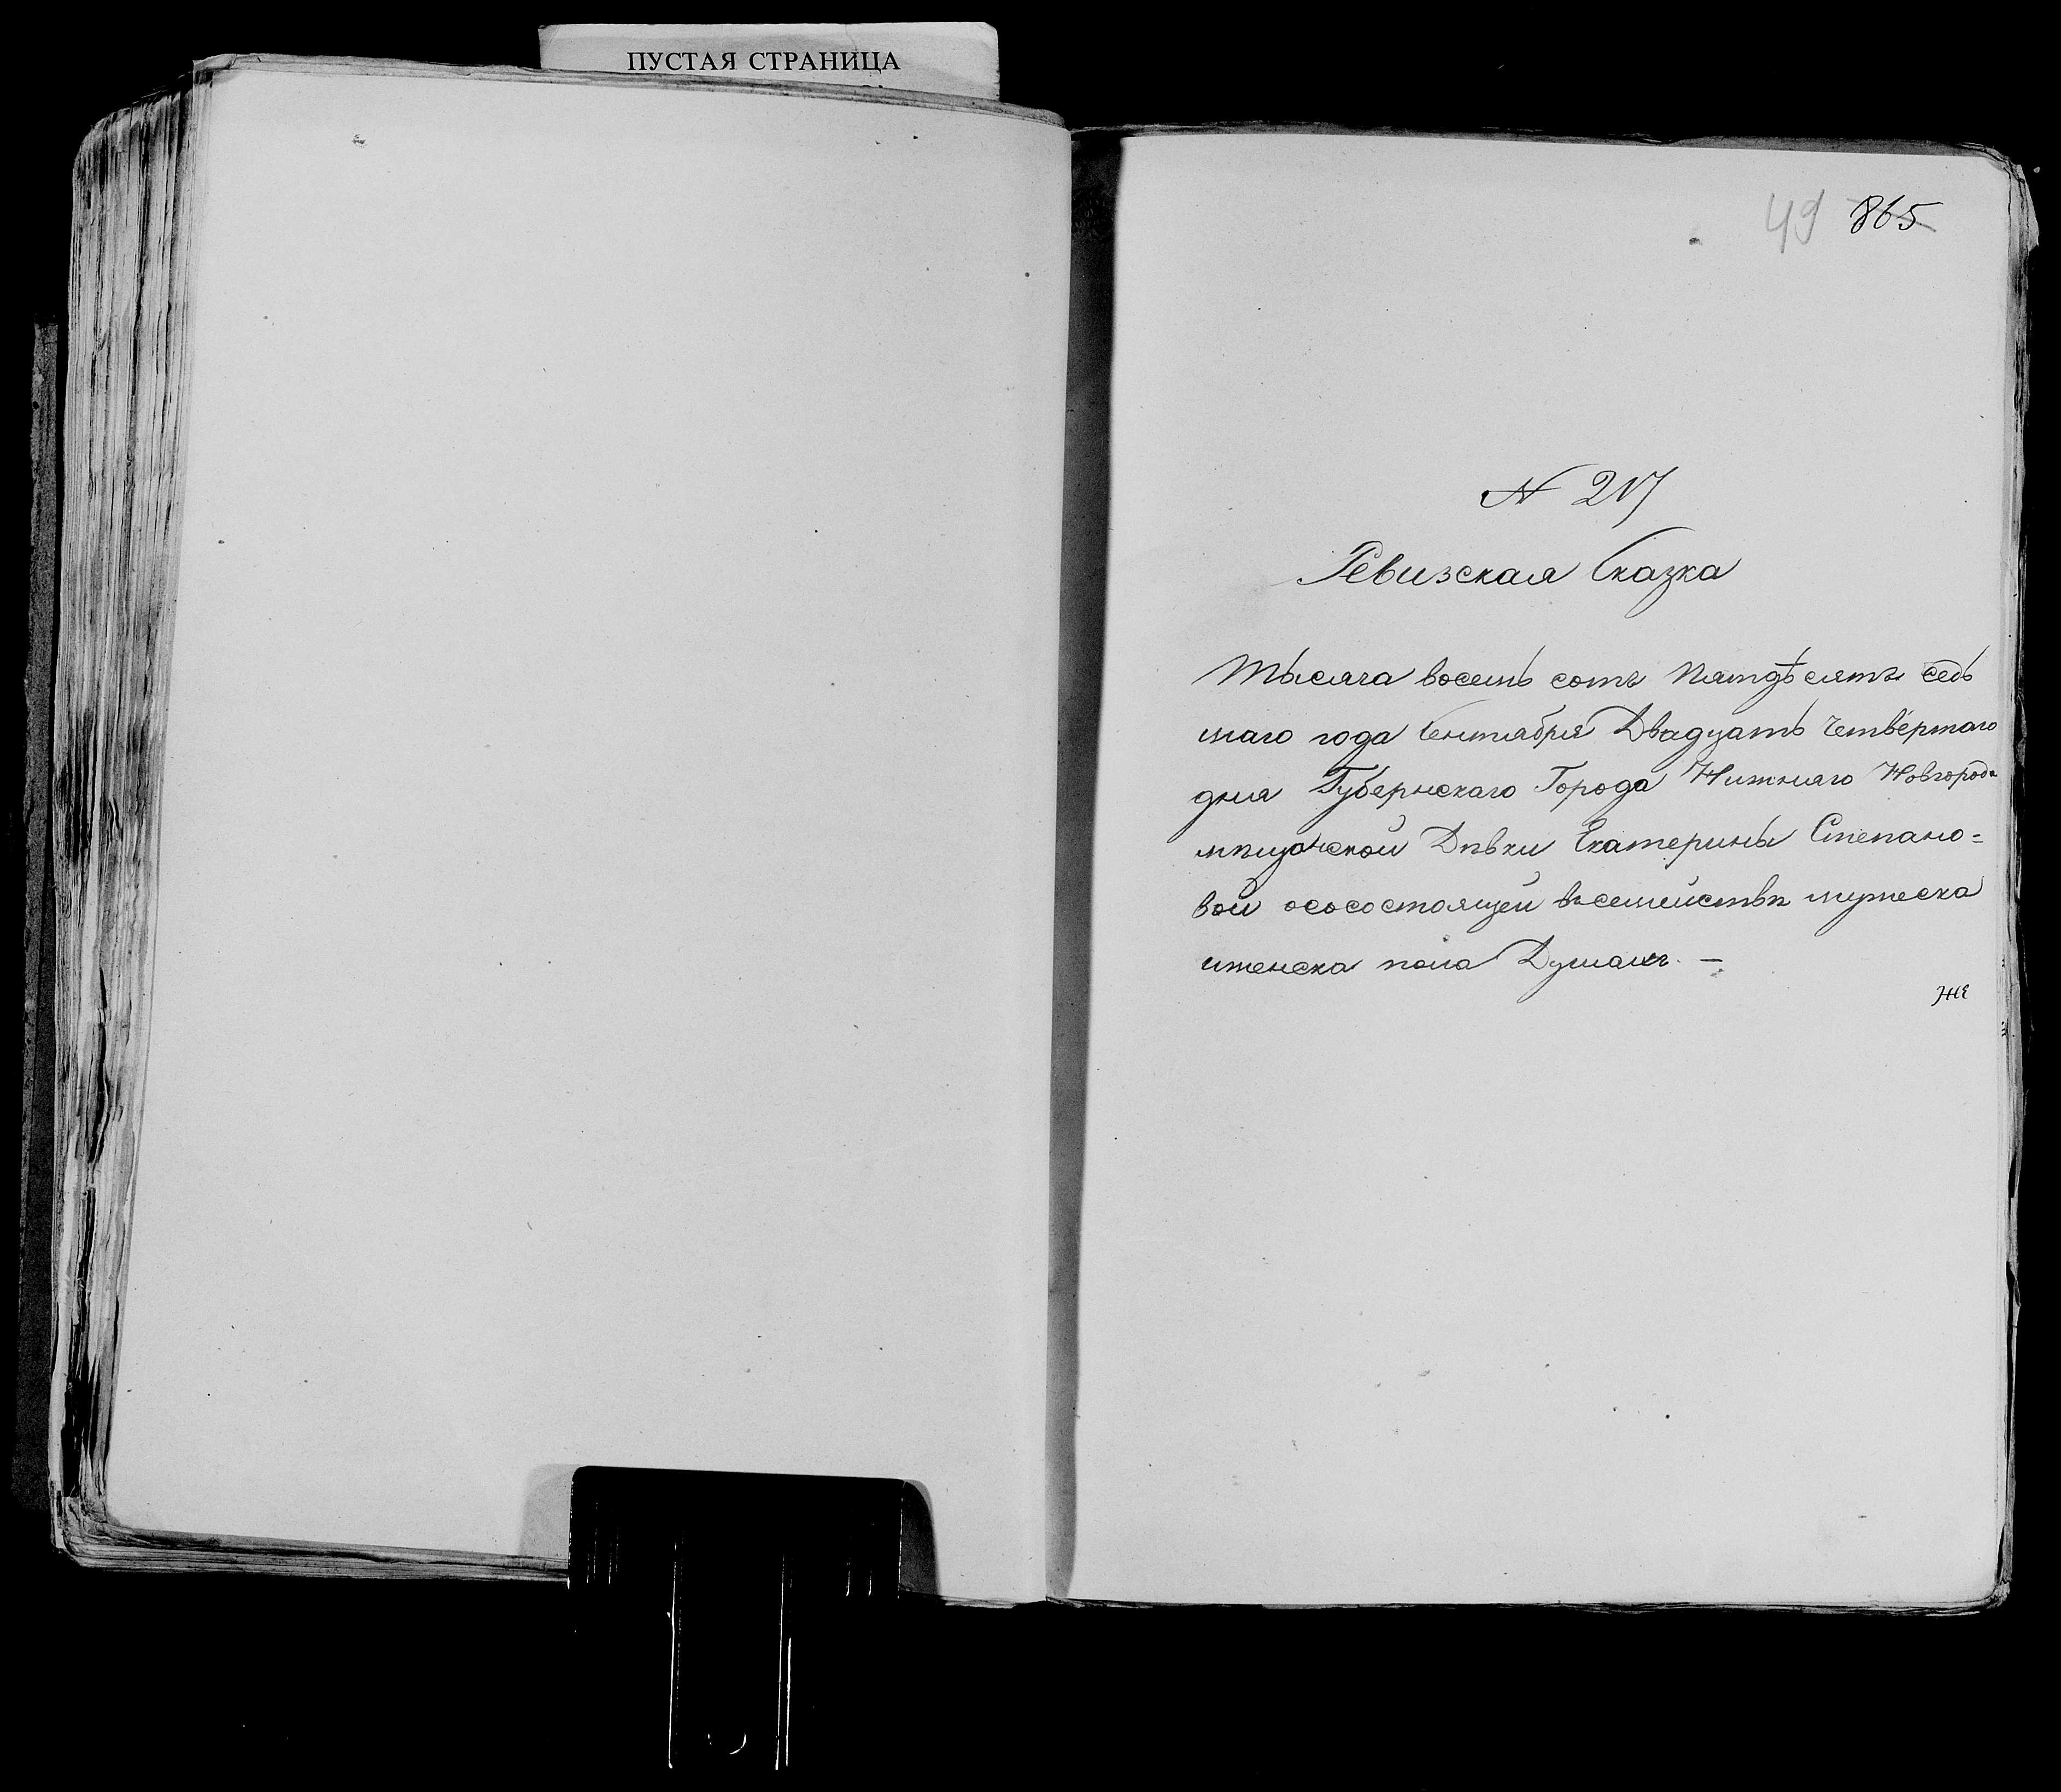 ПУСТАЯ СТРАНИЦА
49 865
N 217
Ревизская Сказка
Тысяча восемь сотъ пятдѣсятъ седь
маго года Сентября Двадцать четвертаго
дня Губернскаго Города Нижняго Новгорода
мѣщанской Дѣвки Екатерины Степано=
вой ососостоящей въсемействѣ мужеска
иженска пола Душахъ. —
же